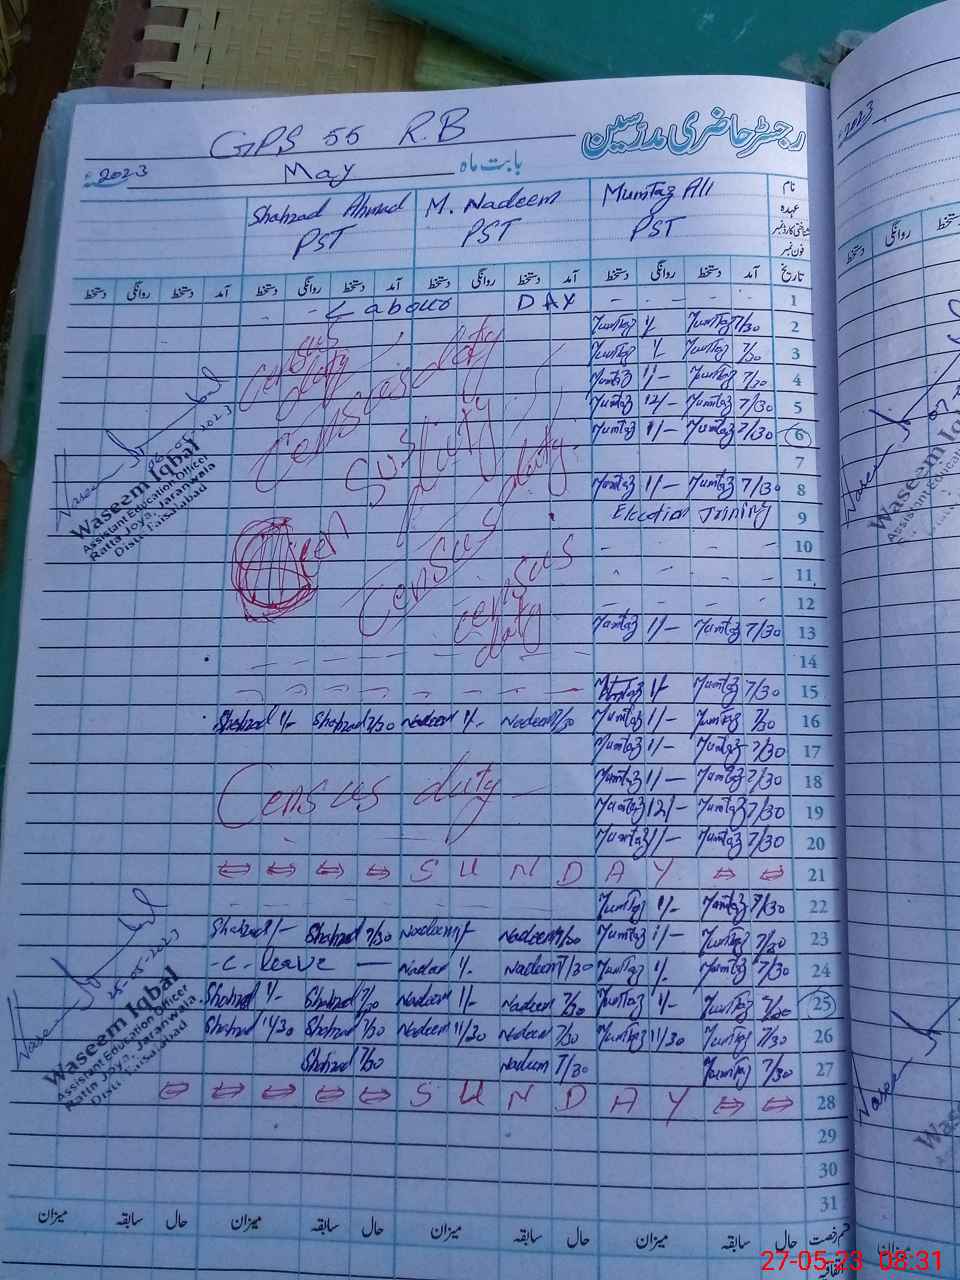 رجسٹر حاضری مدرسین
GPS 55 R.B
بابت ماہ May 2023
نام Mumtaz Ali M. Nadeem Shahzad Ahmad
عہدہ PST PST PST
شناختی کارڈ نمبر
فون نمبر
تاریخ آمد دستخط روانگی دستخط آمد دستخط روانگی دستخط آمد دستخط روانگی دستخط آمد دستخط روانگی دستخط
1 Labour DAY
2 7/30 Mumtaz 1/- Mumtaz
3 7/30 Mumtaz 1/- Mumtaz
4 7/30 Mumtaz 1/- Mumtaz
5 7/30 Mumtaz 12/- Mumtaz
6 7/30 Mumtaz 1/- Mumtaz
7
8 7/30 Mumtaz 1/- Mumtaz
9 Election Trining
10
11
12
13 7/30 Mumtaz 1/- Mumtaz
14
15 7/30 Mumtaz 1/- Mumtaz
16 7/30 Mumtaz 1/- Mumtaz 7/30 Nadeem 1/- Nadeem 7/30 Shahzad 1/- Shahzad
17 7/30 Mumtaz 1/- Mumtaz
18 7/30 Mumtaz 1/- Mumtaz
19 7/30 Mumtaz 12/- Mumtaz
20 7/30 Mumtaz 1/- Mumtaz
21 SUNDAY
22 7/30 Mumtaz 1/- Mumtaz
23 7/30 Mumtaz 1/- Mumtaz 7/30 Nadeem 1/- Nadeem 7/30 Shahzad 1/- Shahzad
24 7/30 Mumtaz 1/- Mumtaz 7/30 Nadeem 1/- Nadeem C. Leave
25 7/30 Mumtaz 1/- Mumtaz 7/30 Nadeem 1/- Nadeem 7/30 Shahzad 1/- Shahzad
26 7/30 Mumtaz 11/30 Mumtaz 7/30 Nadeem 11/30 Nadeem 7/30 Shahzad 11/30 Shahzad
27 7/30 Mumtaz 7/30 Nadeem 7/30 Shahzad
28 SUNDAY
29
30
31
حال سابقہ میزان حال سابقہ میزان حال سابقہ میزان حال سابقہ میزان
Census duty
Census duty
Census duty
Census duty
Census duty
Census duty
06-05-2023
Waseem Iqbal
Assistant Education Officer
Ratta Joya, Jaranwala
Distt. Faisalabad
25-05-2023
Waseem Iqbal
Assistant Education Officer
Ratta Joya, Jaranwala
Distt. Faisalabad
2023
روانگی دستخط
27-05-23 08:31